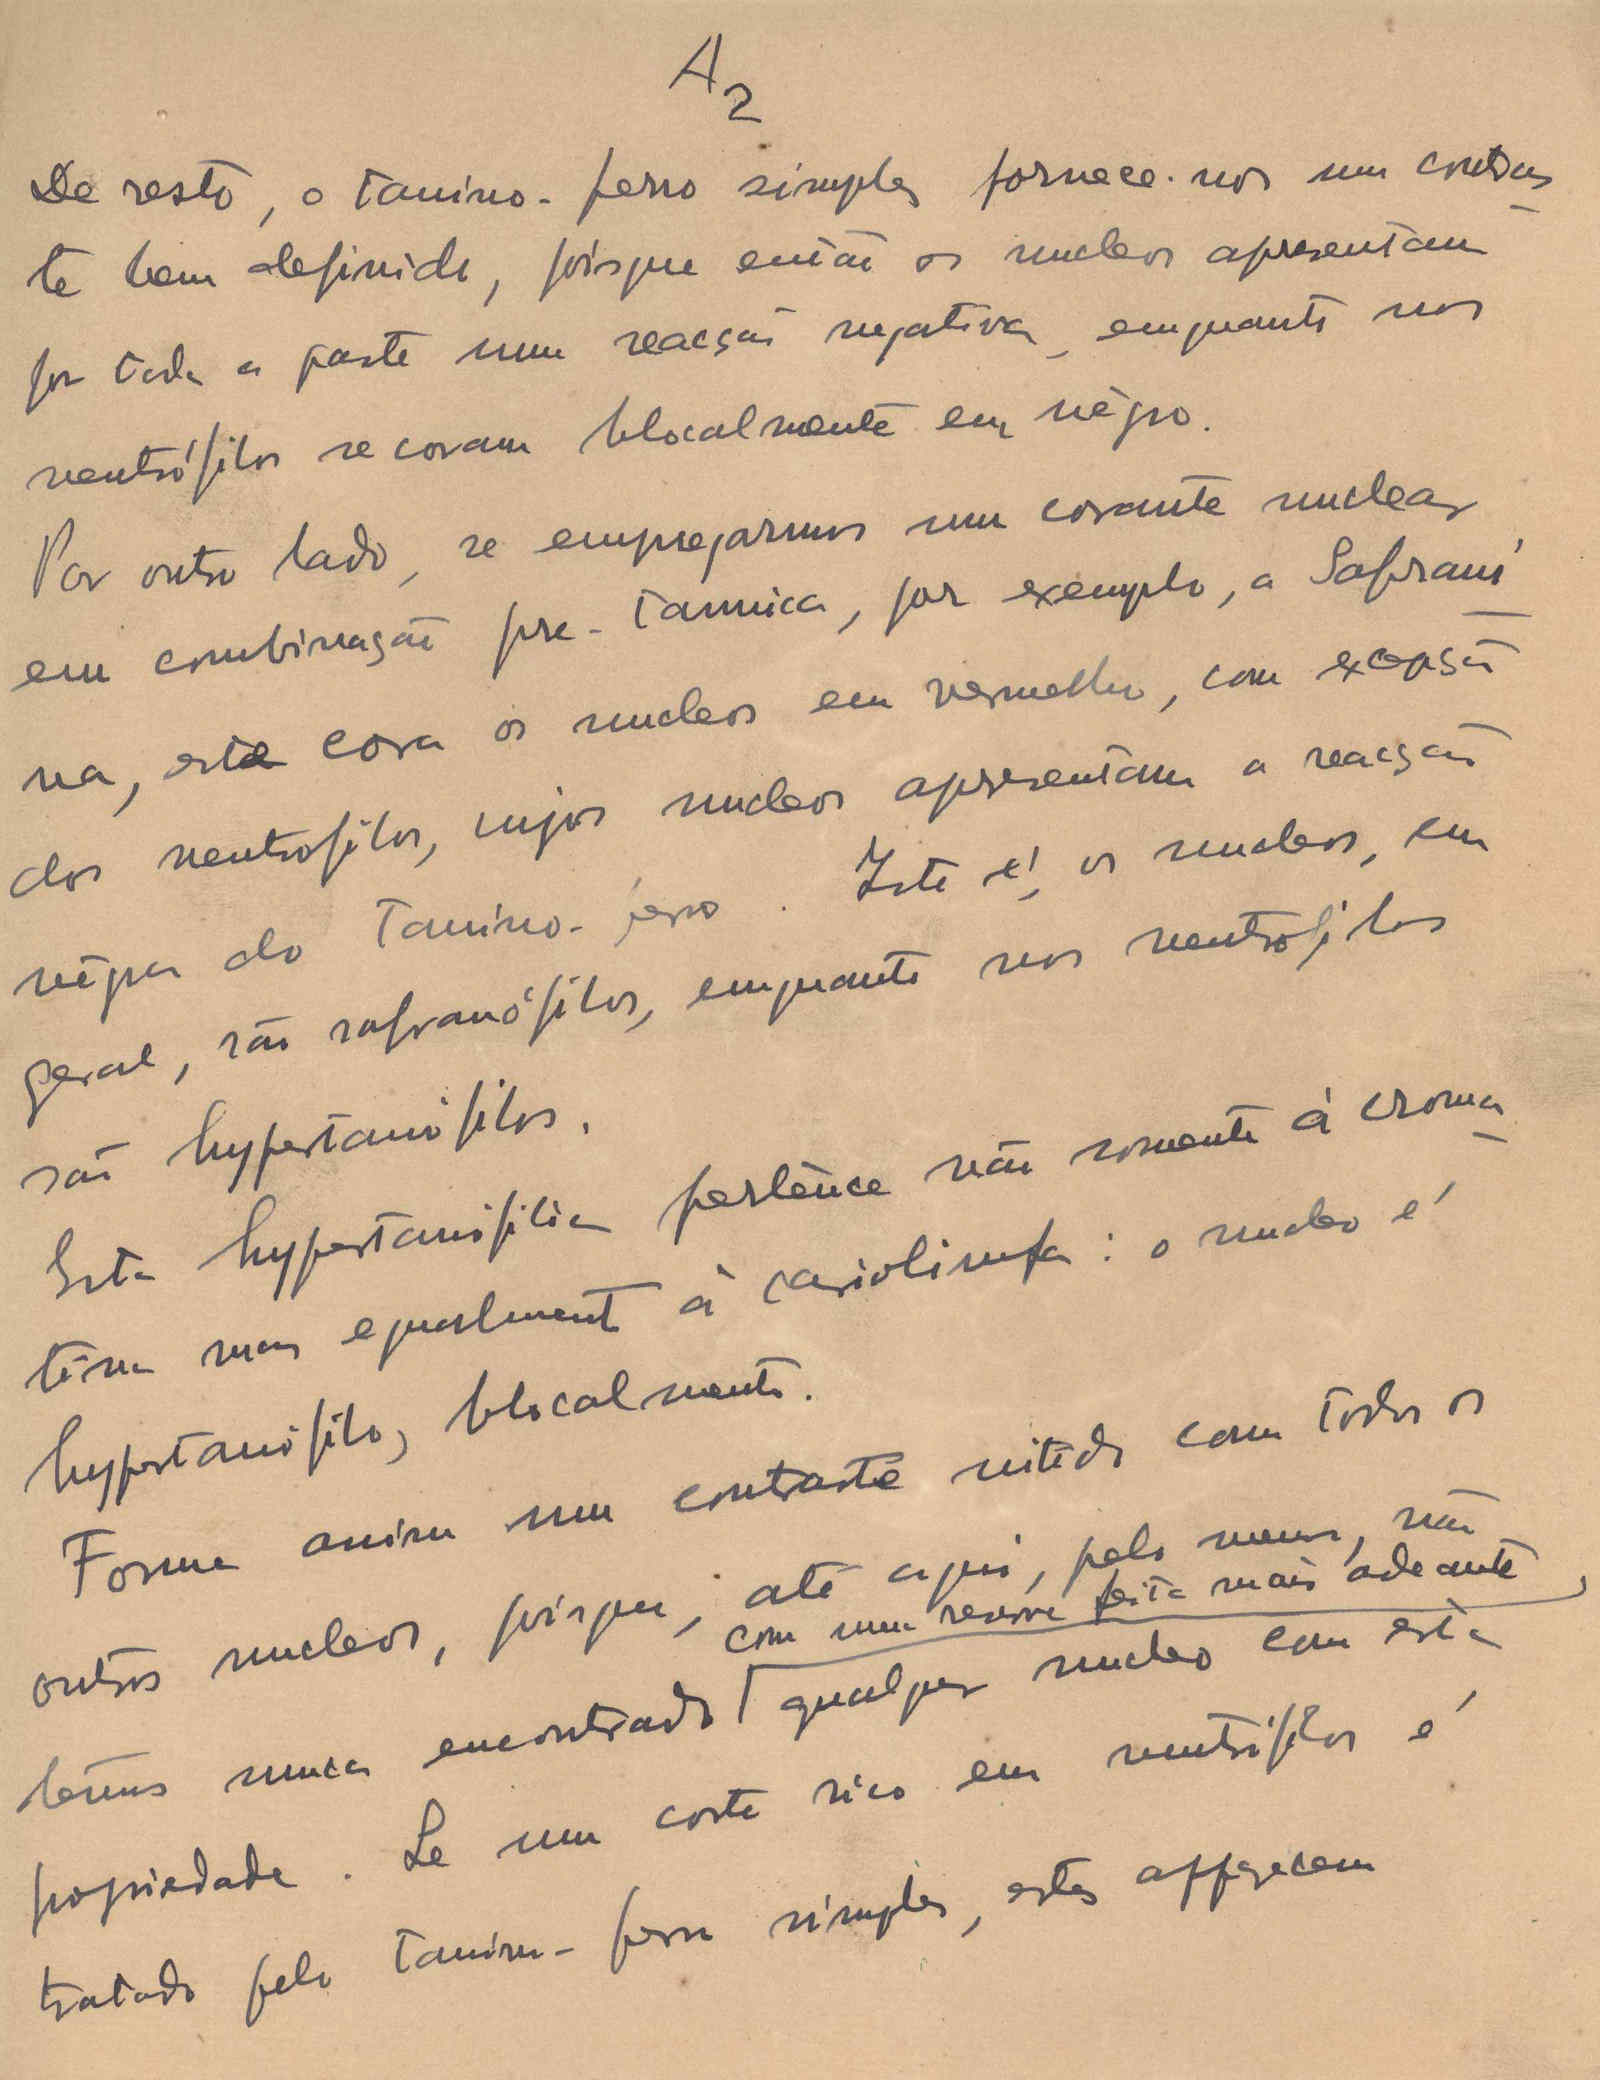 A2
De resto, o tanino-ferro simples fornece-nos um contras-
te bem definido, poisque então os nucleos apresentam
por toda a parte uma reacção negativa, emquanto nos
neutrófilos se coram blocalmente em nègro.
Por outro lado, se empregarmos um corante nuclear
em combinação pre-tannica, por exemplo, a Safrani-
na, esta cora os nucleos em vermelho, com excepção
dos neutrofilos, cujos nucleos apresentam a reacção
nègra do tanino-ferro. Isto é, os nucleos, em
geral, são safranófilos, emquanto nos neutrofilos
são hypertanófilos.
Esta hypertanofilia pertence não somente à croma-
tina mas egualmente à cariolimfa: o nucleo é
hypertanófilo, blocalmente.
Forma assim um contraste nitido com todos os
outros nucleos, poisque, até aqui, pelo menos, não
com uma reserva feita mais adeante,
temos nunca encontrado qualquer nucleo com esta
propriedade. Se um corte rico em neutrófilos é
tratado pelo tanino-ferro simples, estes apparecem